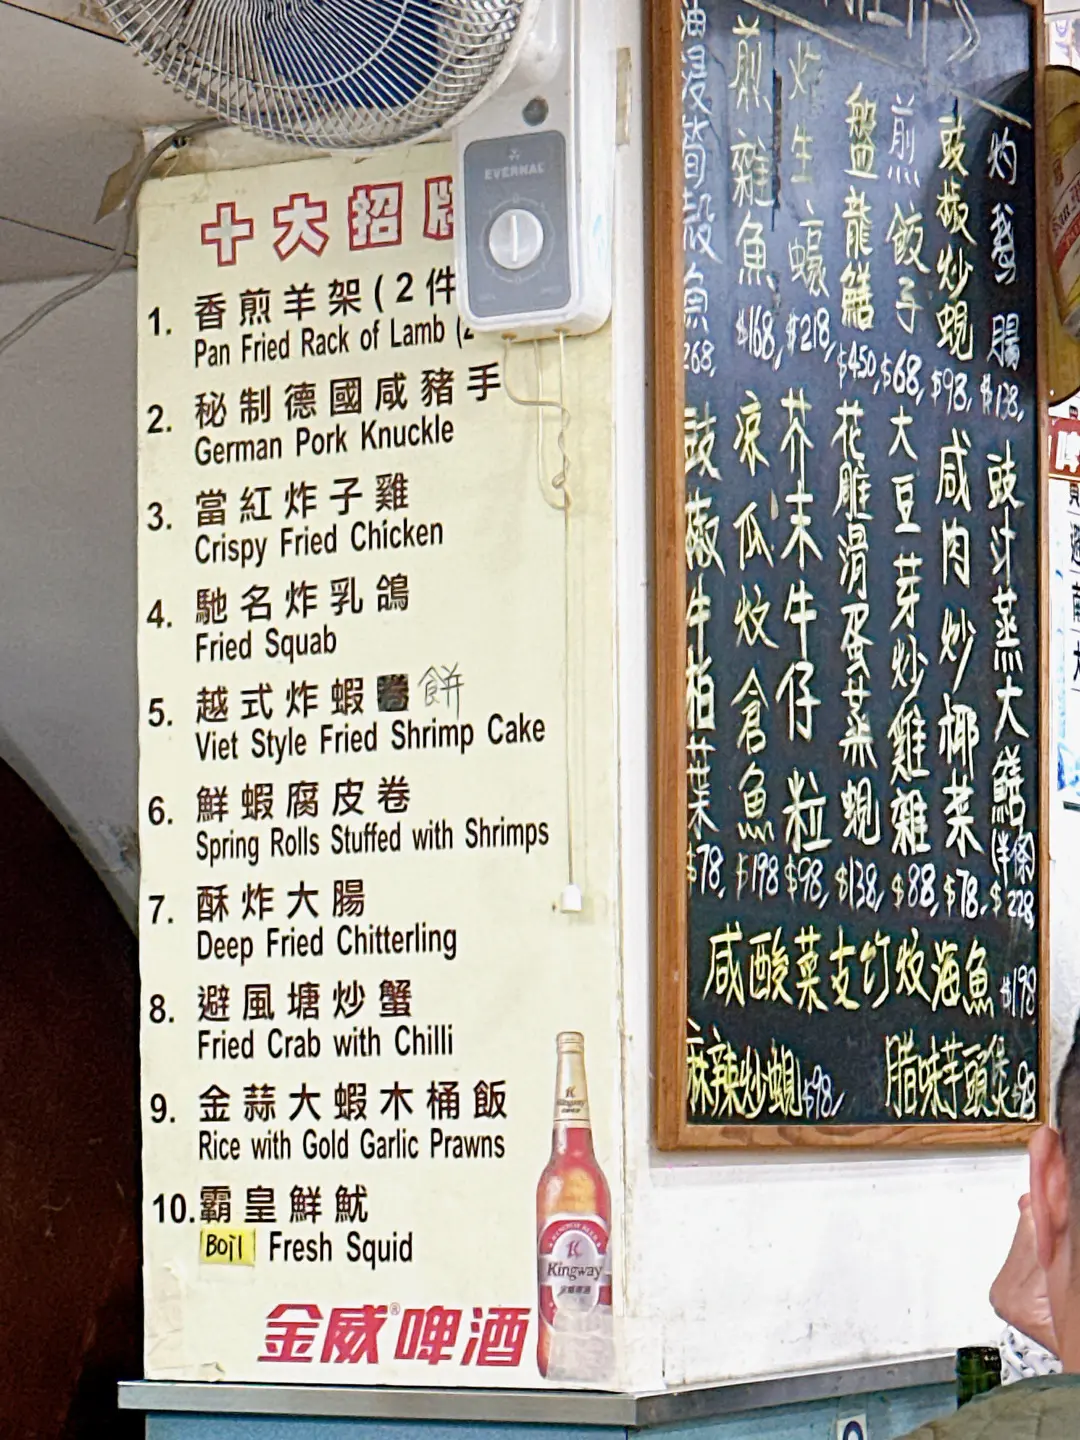 十大招牌
EVERNAL
1. 香煎羊架(2件
Pan Fried Rack of Lamb (2
2. 秘制德國咸豬手
German Pork Knuckle
3. 當紅炸子雞
Crispy Fried Chicken
4. 馳名炸乳鴿
Fried Squab
5. 越式炸蝦餅
Viet Style Fried Shrimp Cake
6. 鮮蝦腐皮卷
Spring Rolls Stuffed with Shrimps
7. 酥炸大腸
Deep Fried Chitterling
8. 避風塘炒蟹
Fried Crab with Chilli
9. 金蒜大蝦木桶飯
Rice with Gold Garlic Prawns
10. 霸皇鮮魷
Boil Fresh Squid
金威®啤酒
Kingway
灼鵝腸 $138
豉椒炒蜆 $98
煎餃子 $68
盤龍鱔 $450
炸生蠔 $218
煎雜魚 $168
油浸筍殼魚 268
豉汁蒸大鱔(半條) $228
咸肉炒椰菜 $78
大豆芽炒雞雜 $88
花雕滑蛋蒸蜆 $138
芥末牛仔粒 $98
涼瓜炆倉魚 $198
豉椒牛柏葉 $78
咸酸菜支竹炆海魚 $198
麻辣炒蜆 $98
腊味芋頭煲 $98